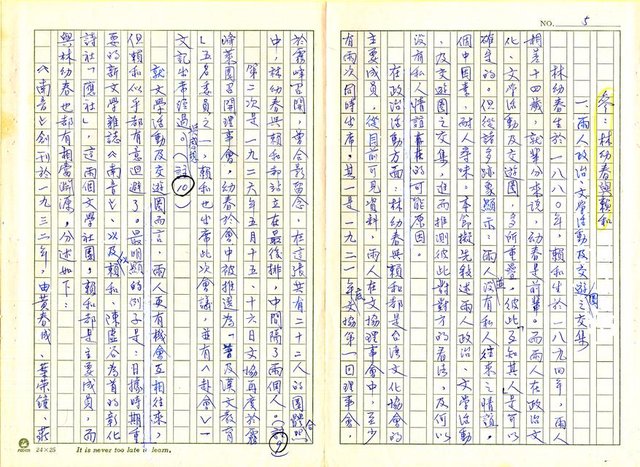 NO. 5
參：林幼春與賴和
一、兩人政治、文學活動及交遊圈之交集
林幼春生於一八八〇年，賴和生於一八九四年，兩人
相差十四歲，就輩分來說，幼春是前輩。而兩人在政治、文
化、文學活動及交遊圈，多所重疊，彼此互知其人是可以
確定的。但從諸多跡象顯示，兩人沒有私人往來之情誼。
個中因素，耐人尋味。本節擬先敘述兩人政治、文學活動
及交遊圈之交集，進而推測彼此對對方的看法，及何以
沒有私人情誼的可能原因。
在政治活動方面：林幼春與賴和都是台灣文化協會的
主要成員，從目前可見資料，兩人在文協理事會中，至少
有兩次同時出席。其一是一九二一年度文協第一回理事會，
於霧峰召開，曾合影留念，在這張共有二十二人的團體照
中，林幼春與賴和都站立在最後排，中間隔了兩個人。（註9）
第二次是一九二六年五月十五、十六日文協再度於霧
峰萊園召開理事會，幼春於會中被推選為「普及漢文教育
」五名委員之一，賴和也出席此次會議，並有〈赴會〉一
文記出席經過。（註10）
就文學活動及交遊圈而言，兩人更有機會互相往來，
但賴和似乎都有意迴避了。最明顯的例子是：日據時期重
要的新文學雜誌《南音》，以及賴和、陳虛谷為首的彰化
詩社「應社」，這兩個文學社團，賴和都是主要成員，而
與林幼春也都有相當淵源，分述如下：
《南音》創刊於一九三二年，由黃春成、葉榮鐘、莊
24×25
It is never too late to learn.